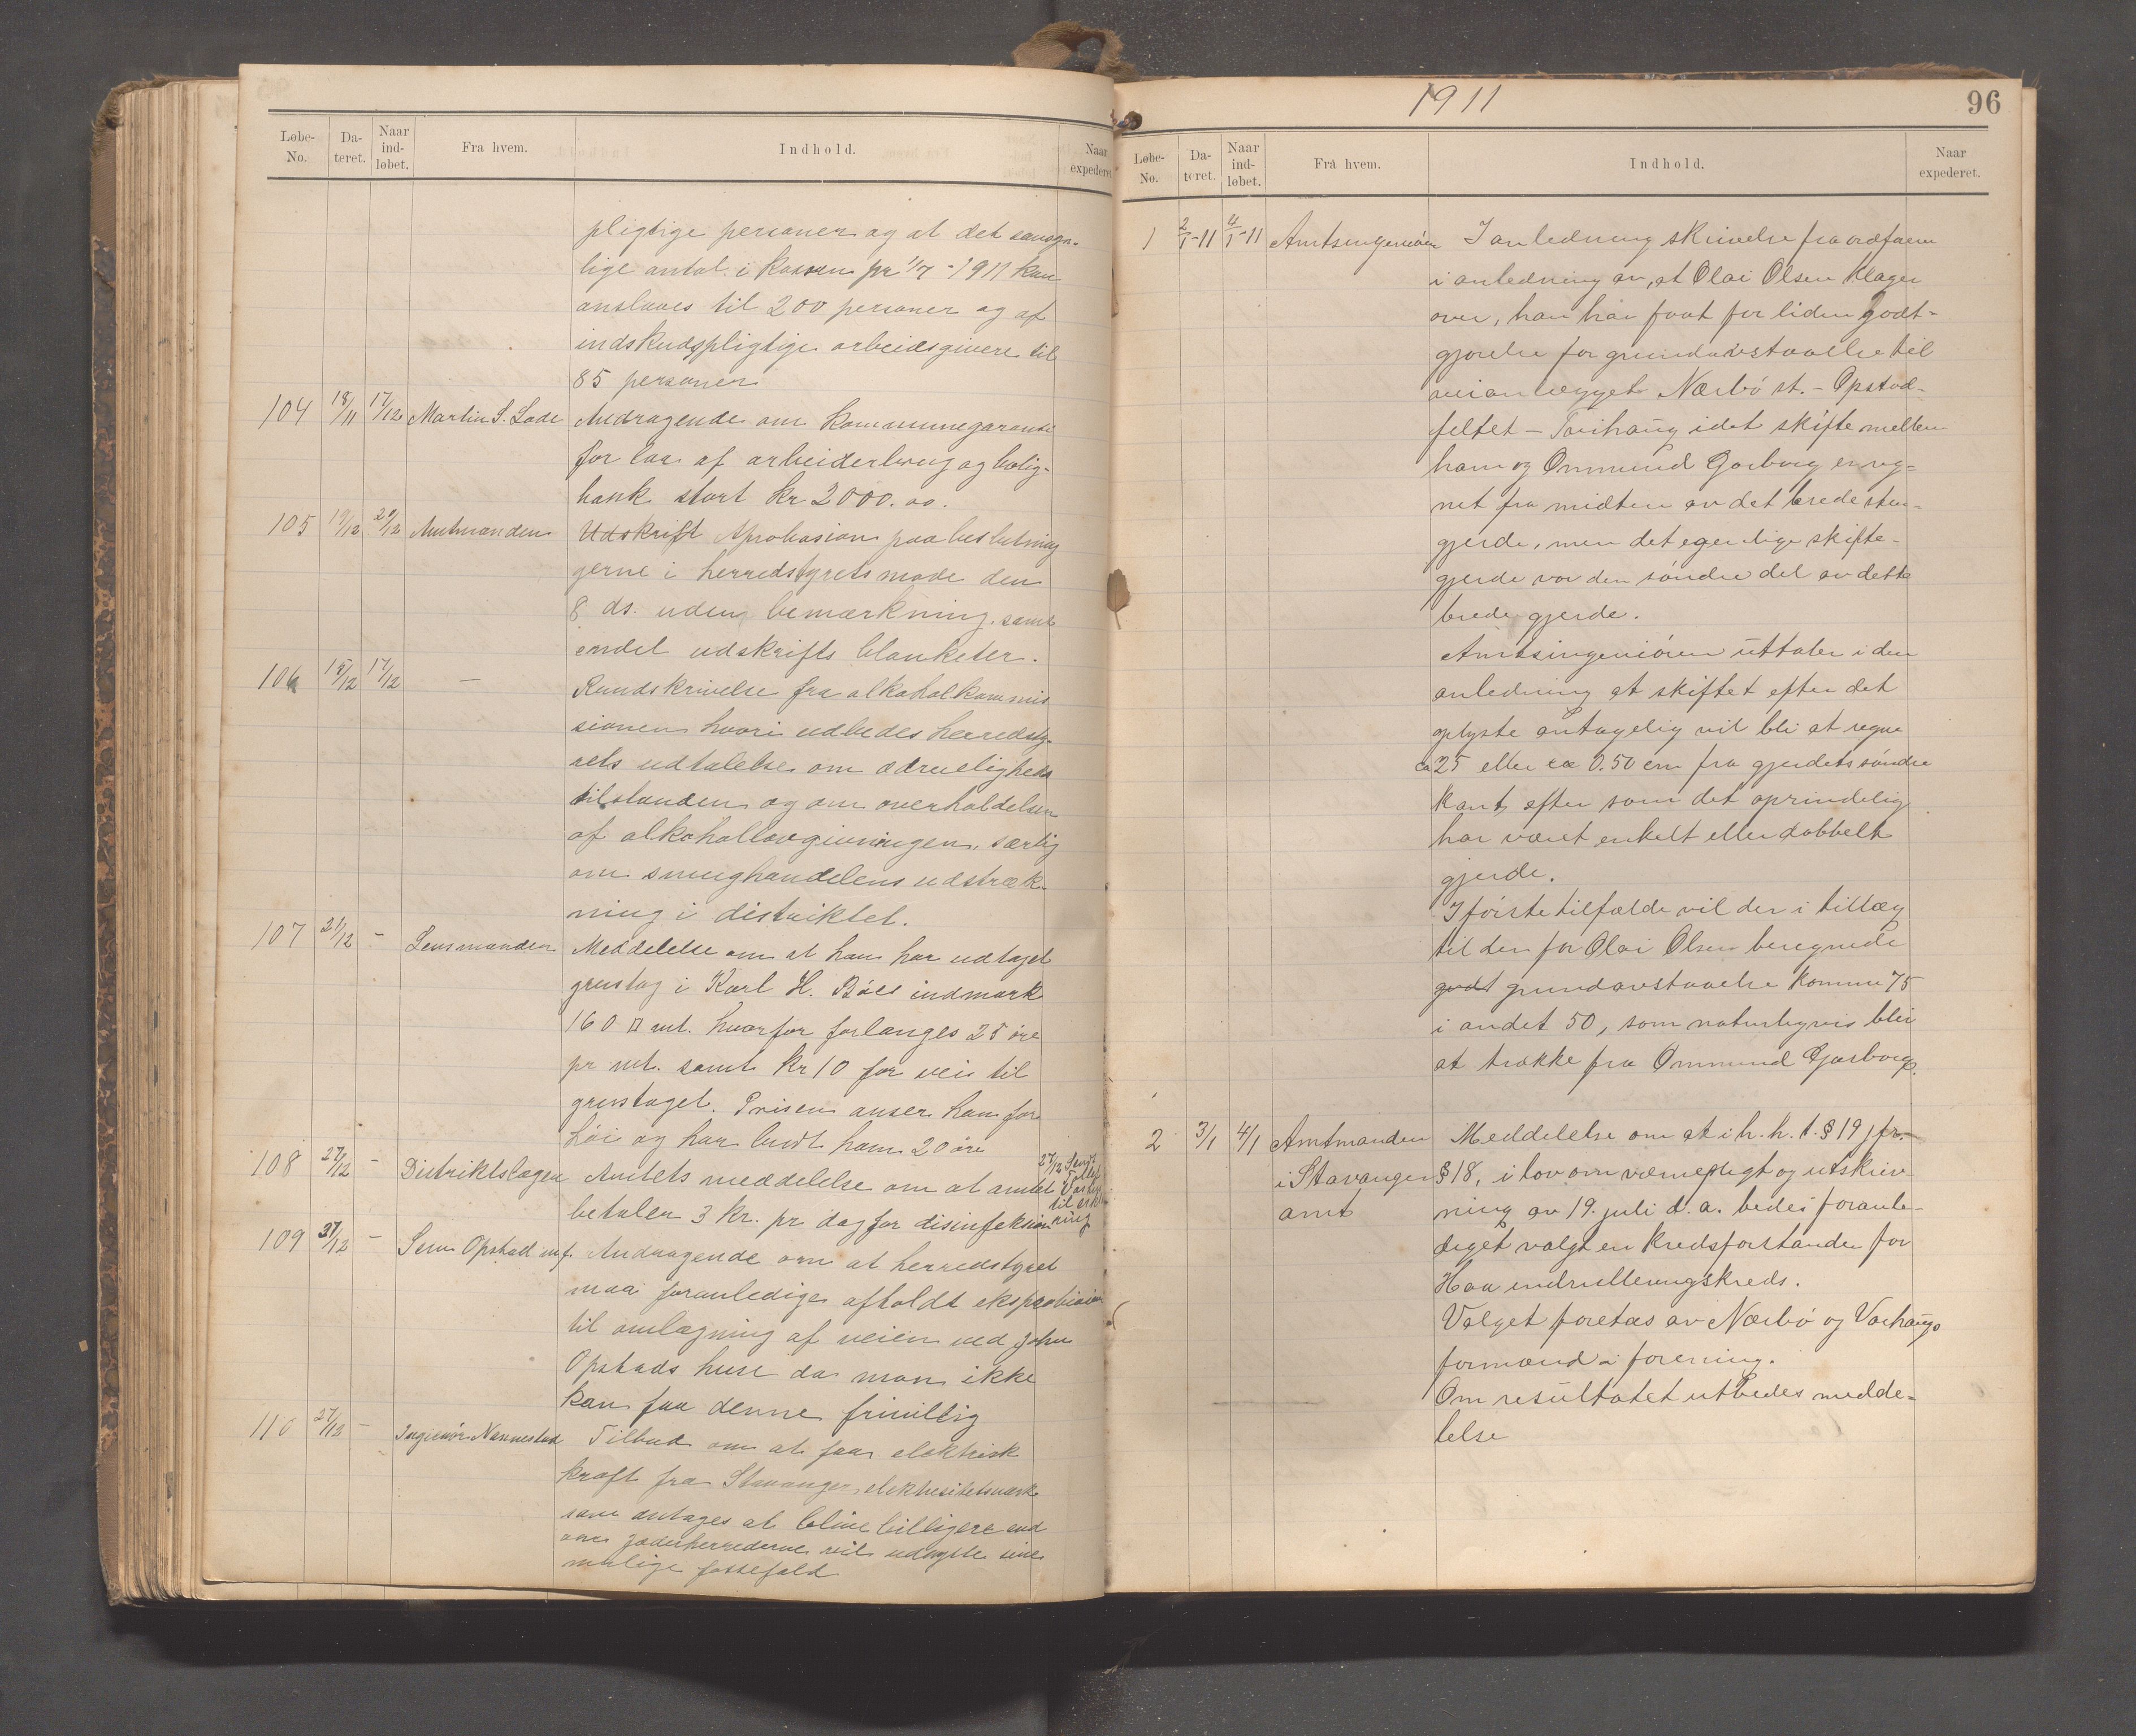 Løbe-No. Da-teret. Naar ind-løbet. Fra hvem. Indhold. Naar expederet.
pligtige personer og at det sansyn-
lige antal i kassen pr 1/7 - 1911 kan
anslaaes til 200 personer og af
indskudspligtige arbeidsgivere til
85 personer
104 18/11 17/12 Martin S. Lode Andragende om kommunegaranti
for laan af arbeiderbrug og bolig-
bank stort kr 2000.00.
105 19/12 20/12 Amtmanden Udskrift Aprobasion paa beslutning
gerne i herredstyrets møde den
8 ds. uden bemærkning. samt
endel udskrifts blanketer.
106 15/12 17/12 — Rundskrivelse fra alkoholkommis
sionen hvori udbedes herredsty-
rets udtalelse om ædrueligheds
tilstanden og om overholdelsen
af alkohollovgivningen, særlig
om smughandelens udstræk-
ning i distriktet.
107 21/12 - Lensmanden Meddelelse om at han har udtaget
grustag i Karl H. Bøes indmark
160 □ mt. hvorfor forlanges 25 øre
pr mt. samt kr 10 for vei til
grustaget. Prisen anser han for
høi og har budt ham 20 øre
108 27/12 - Distriktslægen Amtets meddelelse om at amtet
betaler 3 kr. pr dag for disinfeksion
27/12 Sendt
til erklæ
ring
109 27/12 - Sem Opstad m.f. Andragende om at herredstyret
maa foranledige afholdt ekspropriasion
til omlægning af veien ved John
Opstads huse da man ikke
kan faa denne frivillig
110 27/12 - Ingeniør Nannestad Tilbud om at faa elektrisk
kraft fra Stavanger elektrisitetsværk
som antages at blive billigere end
om Jæderherrederne vil udbygge sine
mulige fossefald
1911
96
Løbe-No. Da-teret. Naar ind-løbet. Fra hvem. Indhold. Naar expederet.
1 2/1-11 4/1-11 Amtsingeniøren I anledning skrivelse fra ordføren
i anledning av, at Olai Olsen klager
over, han har faat for liden godt-
gjørelse for grundavstaaelse til
veianlægget Nærbø st. - Opstad-
feltet - Tuihaug idet skifte mellem
ham og Ommund Garborg er reg-
net fra midten av det brede sten-
gjerde, men det egentlige skifte-
gjerde var den søndre del av dette
brede gjerde.
Amtsingeniøren uttaler i den
anledning at skiftet efter det
oplyste antagelig vil bli at regne
ca 25 eller ca 0.50 cm fra gjerdets søndre
kant, efter som det oprindelig
har været enkelt eller dobbelt
gjerde.
I første tilfælde vil der i tillæg
til den for Olai Olsen beregnede
godt grundavstaaelse komme 75
i andet 50, som naturligvis blir
at trække fra Ommund Gjarborgs.
2 3/1 4/1 Amtmanden Meddelelse om at i h. h. t. § 19 jfr.
i Stavanger § 18, i lov om værnepligt og utskriv-
amt ning av 19. juli d. a. bedes foranle-
diget valgt en kredsforstander for
Haa indrulleringskreds.
Valget foretas av Nærbø og Varhaugs
formænd i forening.
Om resultatet utbedes medde-
lelse